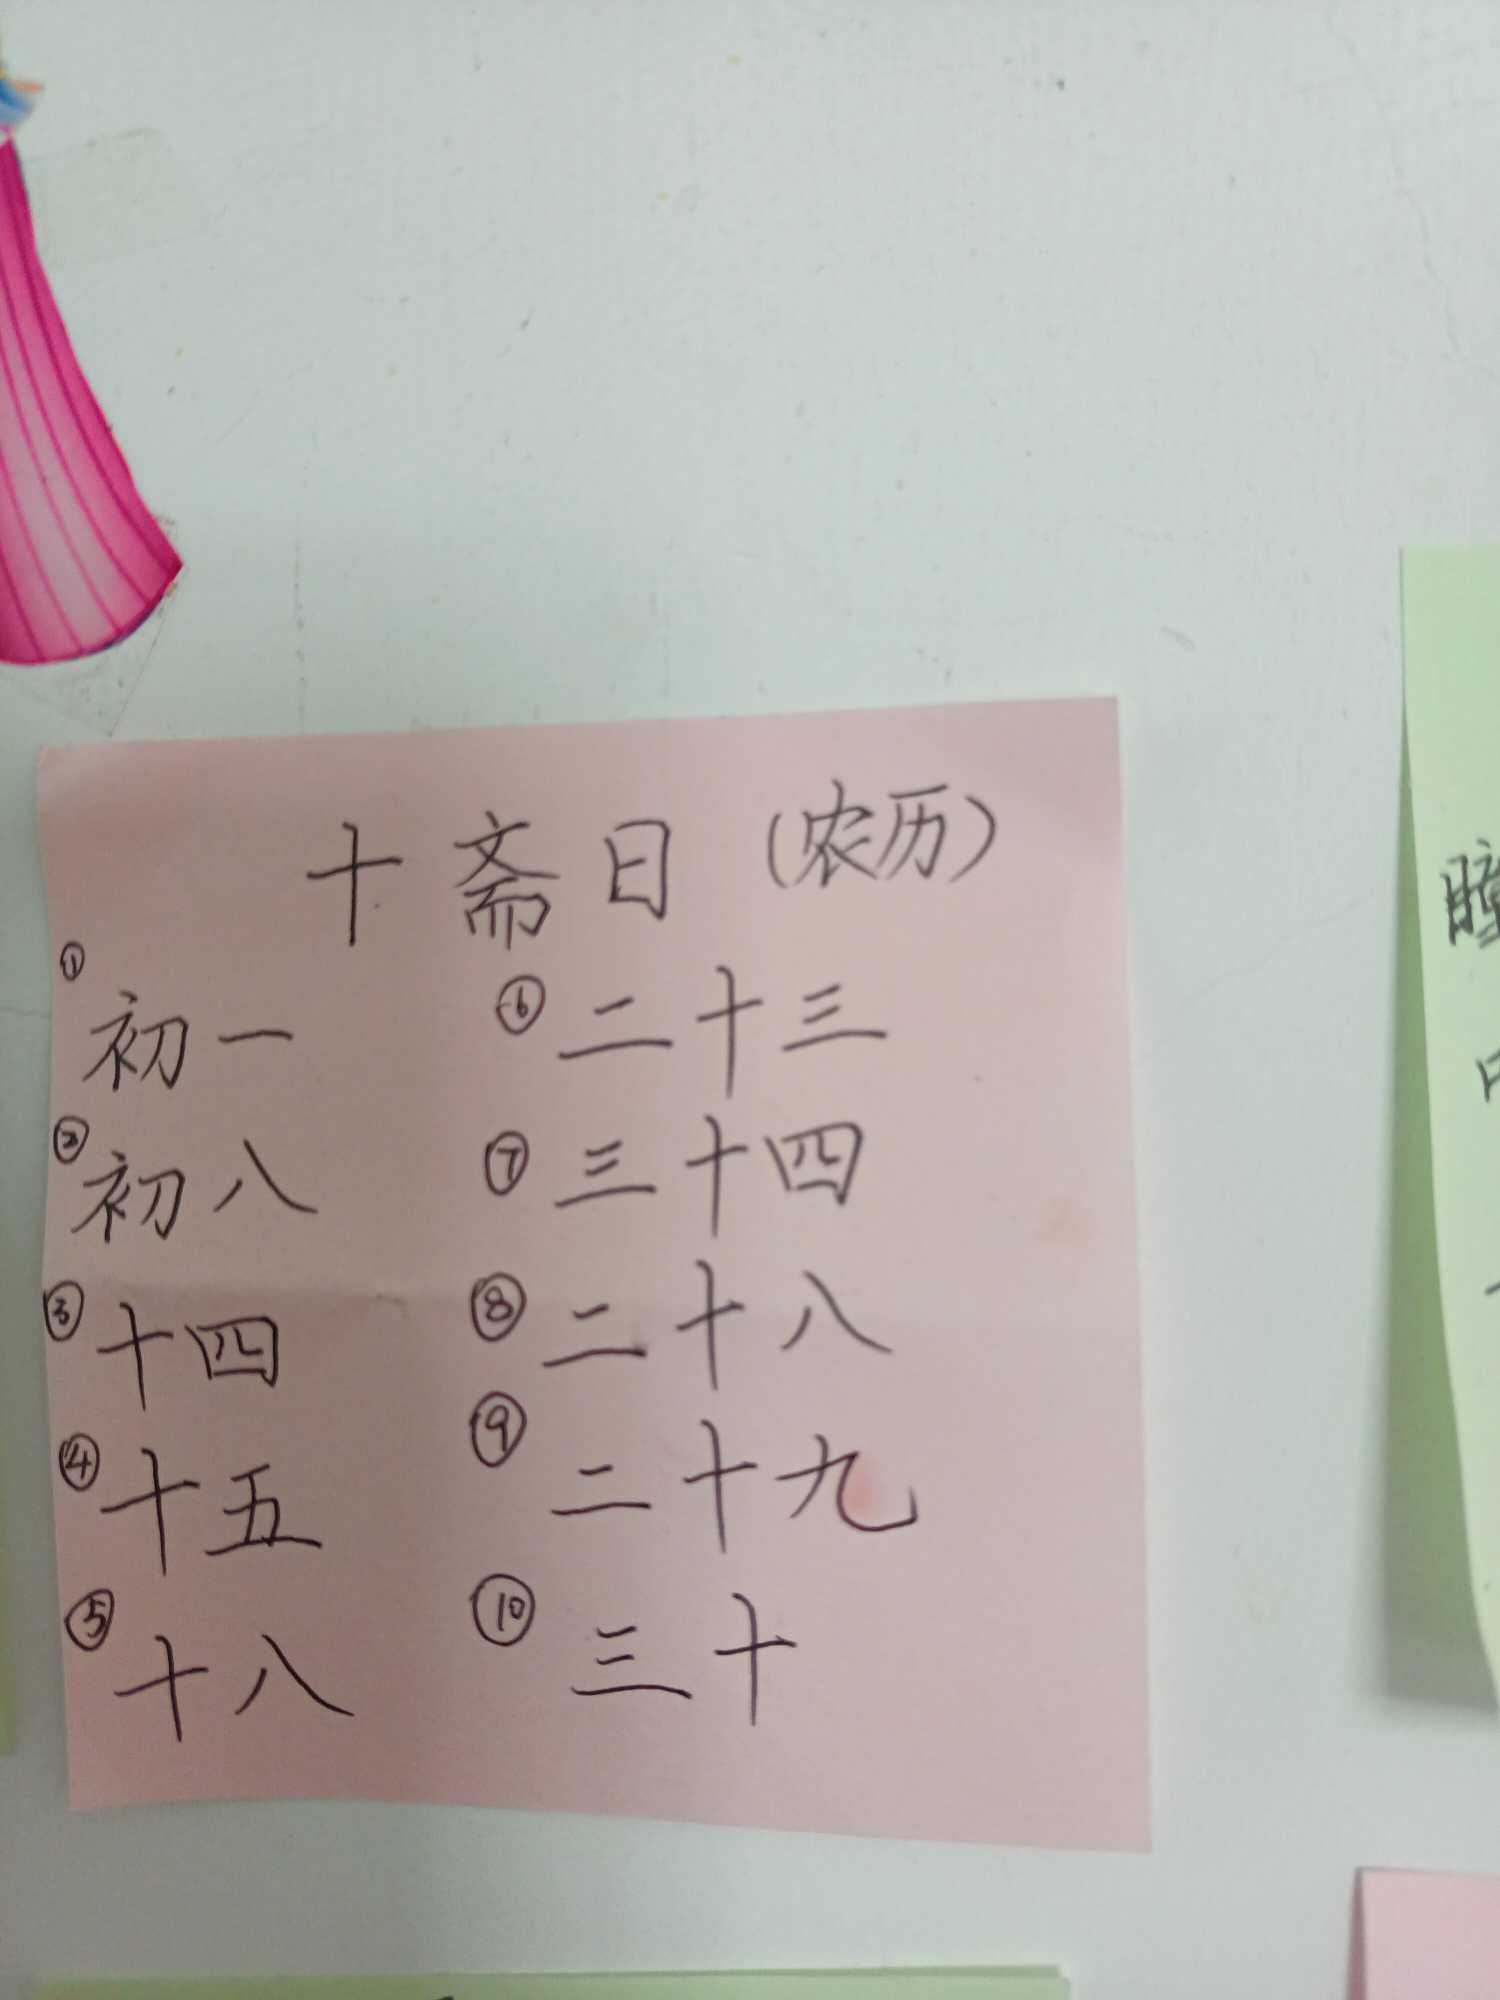 十斋日（农历）
①初一
②初八
③十四
④十五
⑤十八
⑥二十三
⑦三十四
⑧二十八
⑨二十九
⑩三十
瞳